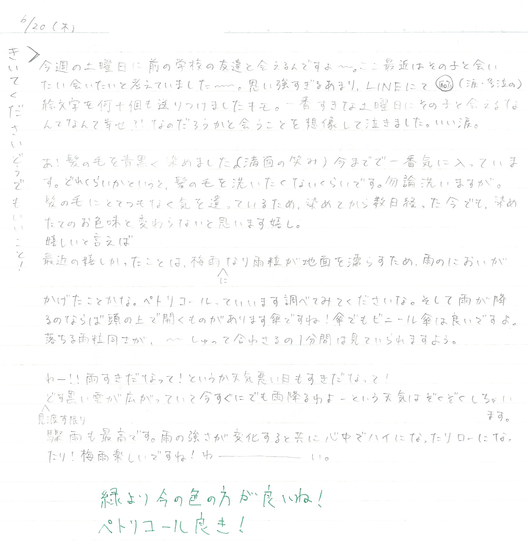 6/20(木)
きいてくださいどうでもいいこと!
今週の土曜日に前の学校の友達と会うるんですよ〜。ここ最近はその子と会い
たい会いたいと考えていました〜。思い強すぎるあまり、LINEにて(泣・号泣の)
絵文字を何十個も送りつけましたもん。一番すきな土曜日にその子と会うるな
んてなんて幸せ!?なのだろうかと会うことを想像して泣きました。いい涙。
あ!髪の毛を青黒く染めました!(満面の笑み)今までで一番気に入っていま
す。どれくらいかというと、髪の毛を洗いたくないくらいです。勿論洗いますが。
髪の毛にとてつもなく気を遣っているため、染めてから数日経った今でも、染め
たてのお色味と変わらないと思います嬉し。
嬉しいと言えば
最近の嬉しかったことは、梅雨になり雨粒が地面を濡らすため、雨のにおいが
かげたことかな。ペトリコールっていいます調べてみてくださいな。そして雨が降
るのならば頭の上で開くものがあります傘ですね!傘でもビニール傘は良いですよ。
落ちる雨粒同士が、〜しゅって合わさるの1分間は見ていられますよう。
わー!!雨すきだなって!というか天気悪い日もすきだなって!
どす黒い雲が広がっていて今すぐにでも雨降るわよーという天気はぞくぞくしちゃい
ます。
見渡す限り
雨も最高です。雨の強さが変化すると共に心中でハイになったりローになっ
たり!梅雨楽しいですね!わ―――い。
緑より今の色の方が良いね!
ペトリコール良き!